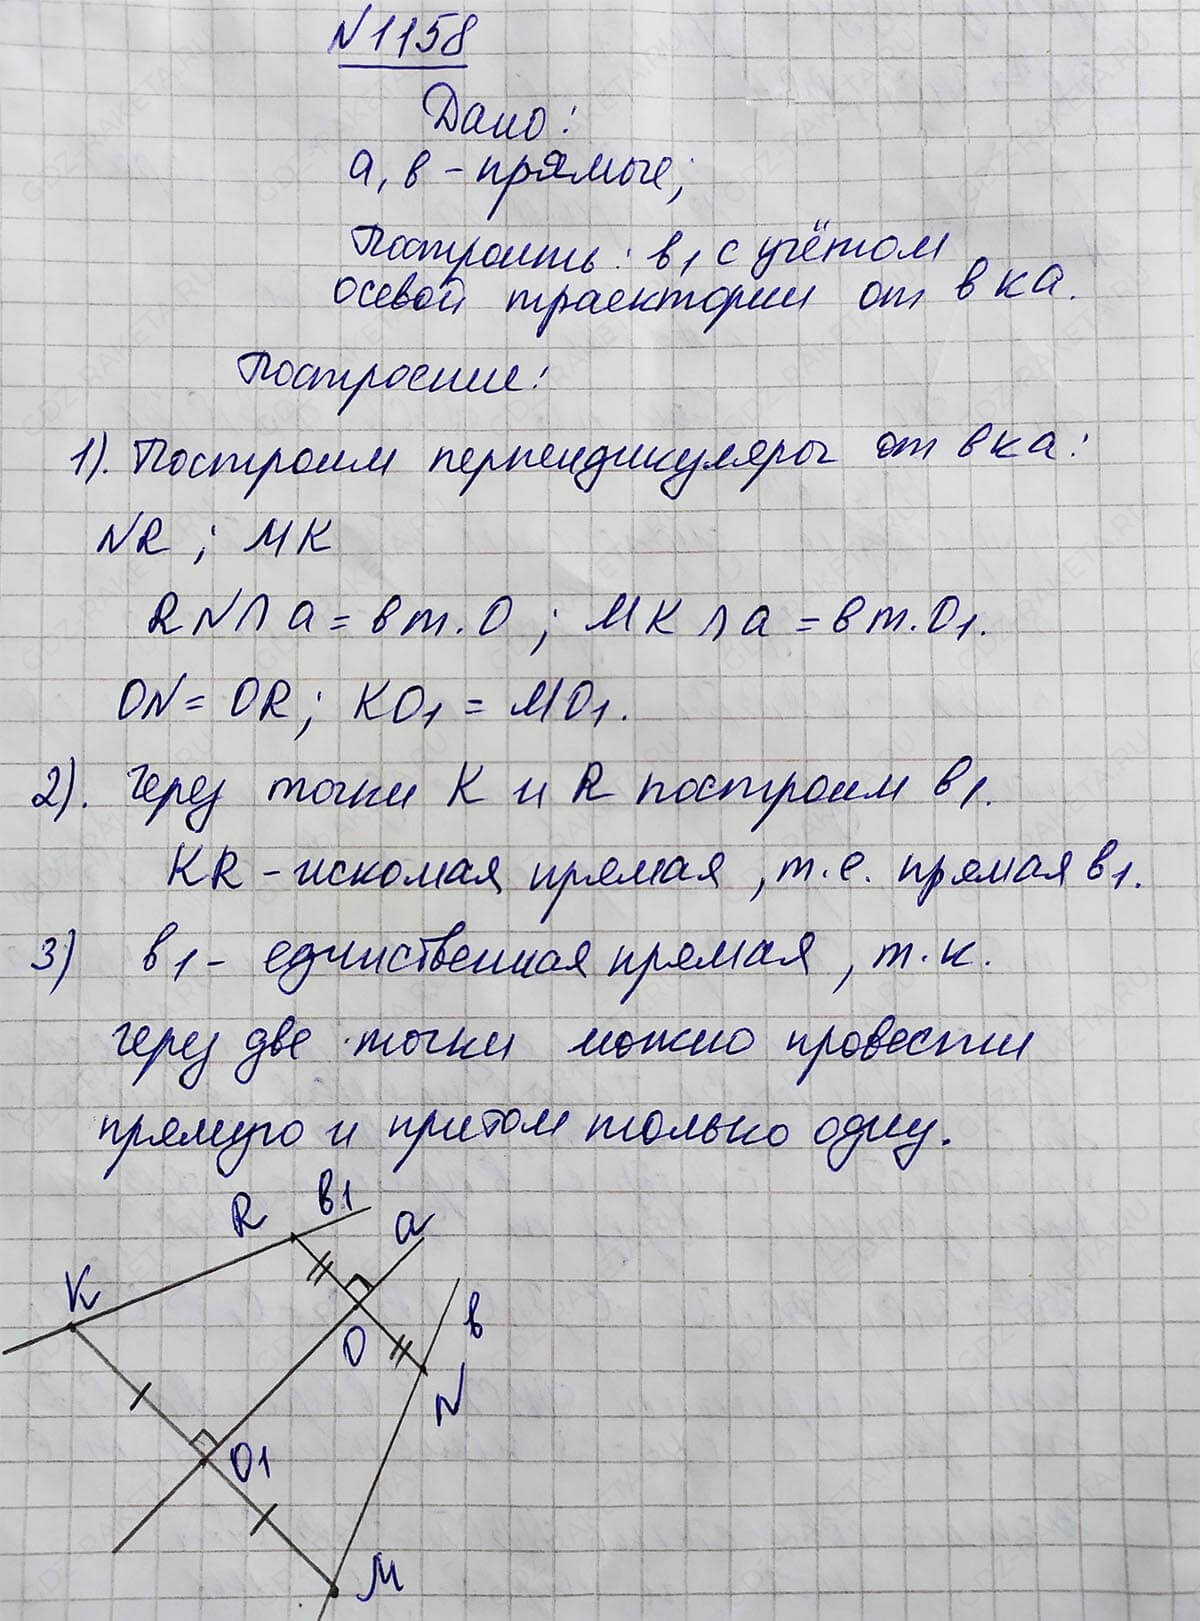 №1158
Дано:
а, в - прямые;
Построить: в1 с учётом
осевой траектории от в к а.
Построение:
1). Построим перпендикуляры от в к а:
NR ; MK
RN∩a = в т. O ; MK∩a = в т. O1.
ON = OR ; KO1 = MO1.
2). Через точки K и R построим в1.
KR - искомая прямая, т.е. прямая в1.
3) в1 - единственная прямая, т.к.
через две точки можно провести
прямую и притом только одну.
R в1 а
K
в
O
N
O1
M